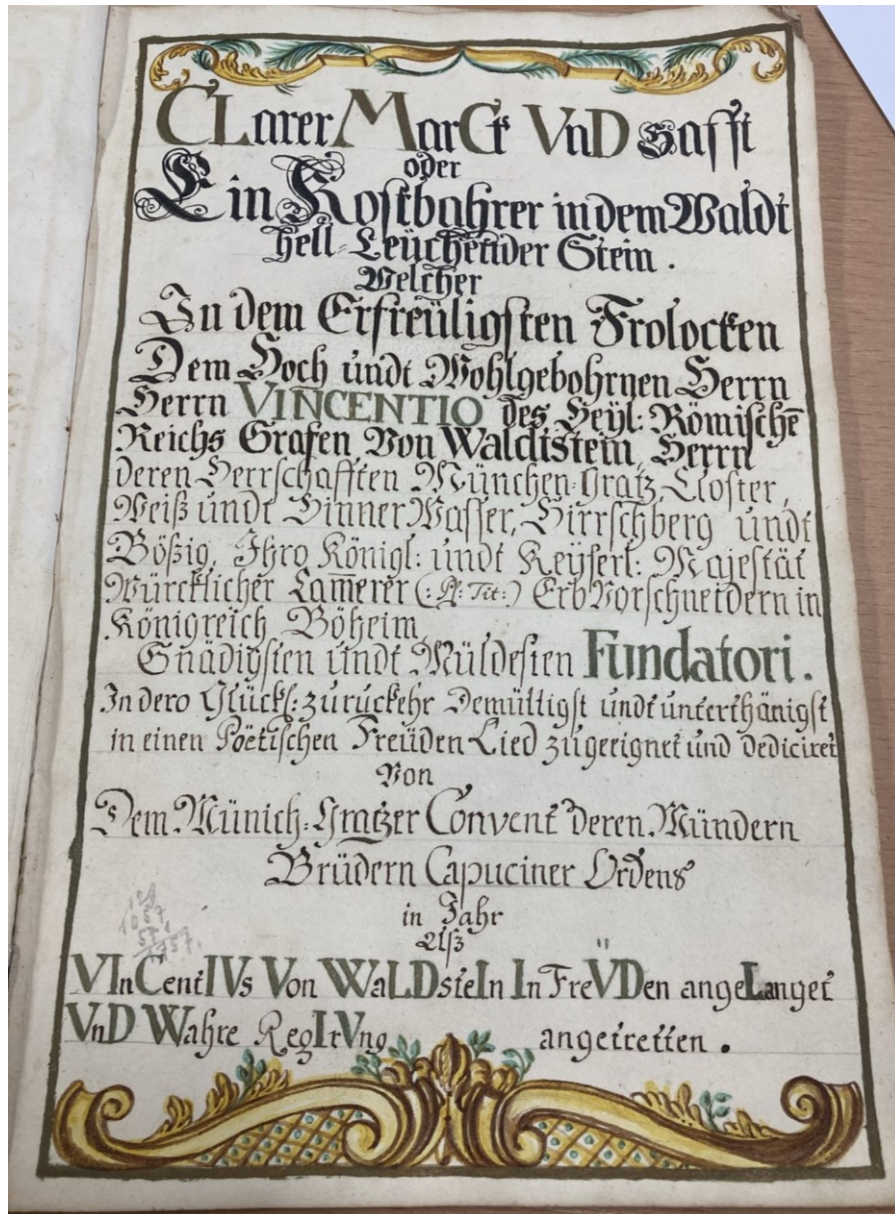 CLarer MarCk VnD Safft
oder
Ein Kostbahrer in dem Waldt
hell-Leüchender Stein.
Welcher
In dem Erfreüligsten Frolocken
Dem Hoch undt Wohlgebohrnen Herrn
Herrn VINCENTIO des Heyl: Römischē
Reichs Grafen Von Waldtstein, Herrn
deren Herrschafften München-Gratz, Closter,
Weiß undt Hinner Wasser, Hirrschberg undt
Bößig, Ihro Königl: undt Keyserl: Majestät
Würcklicher Cam̄erer (: Pl: Tit:) Erb Vorschneidern in
Königreich Böheim,
Gnädigsten undt Müldesten Fundatori.
In dero Glückl: zurückehr Demüttigst undt unterthänigst
in einen Poëtischen Freüden Lied zugeeignet und dediciret
Von
Dem Münich-Gratzer Convent deren Mündern
Brüdern Capuciner Ordens
in Jahr
Alß
VInCentIVs Von WaLDsteIn In FreṼDen angeLanget
VnD Wahre RegIrVng angetretten.
1057
57
1757.